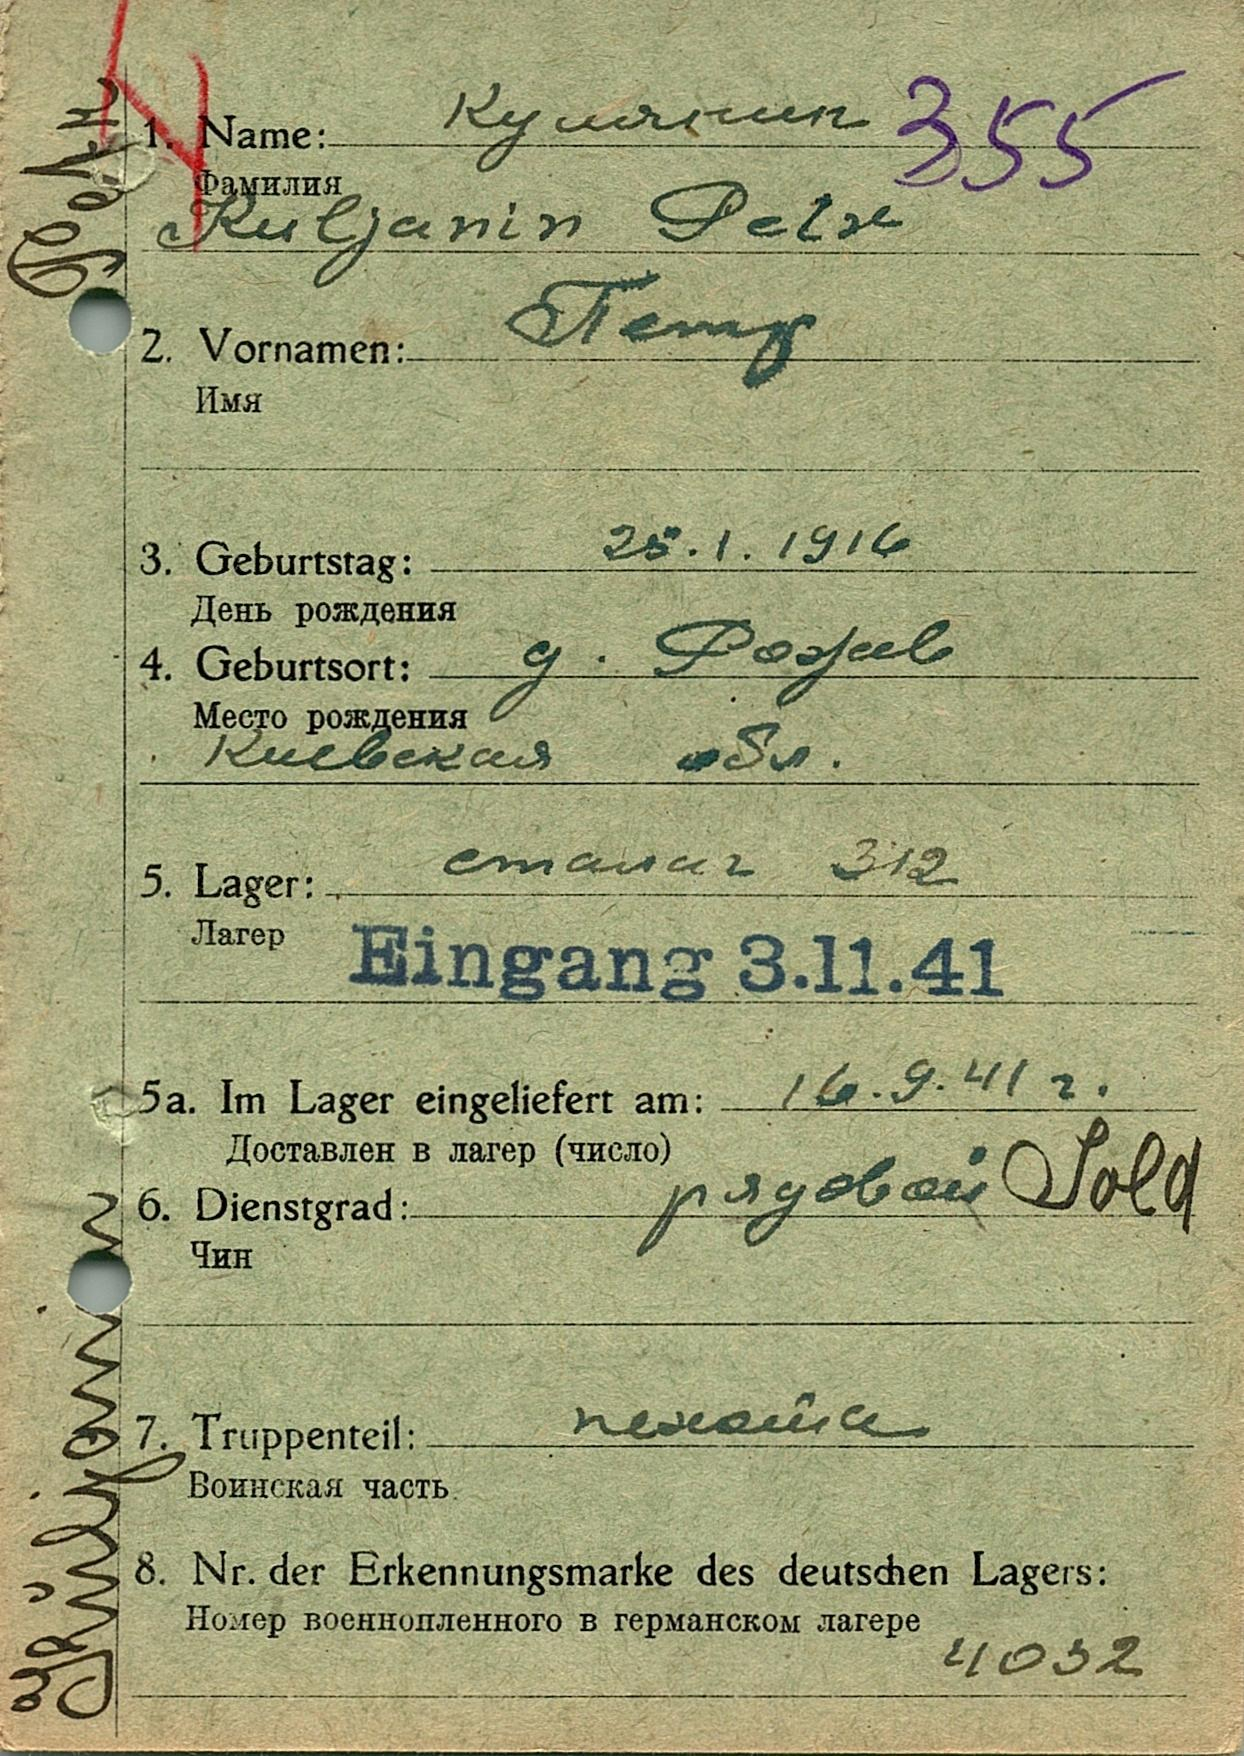 Кулянин 355
1. Name:
Фамилия
Kuljanin Petr
Петр
2. Vornamen:
Имя
3. Geburtstag: 25.1.1916
День рождения
4. Geburtsort: д.
Место рождения
Киевская обл.
5. Lager: сталаг 312
Лагер
Eingang 3.11.41
5a. Im Lager eingeliefert am: 16.9.41 г.
Доставлен в лагер (число)
6. Dienstgrad: рядовой Sold
Чин
7. Truppenteil: пехота
Воинская часть
8. Nr. der Erkennungsmarke des deutschen Lagers:
Номер военнопленного в германском лагере
4032
Kuljanin Petr